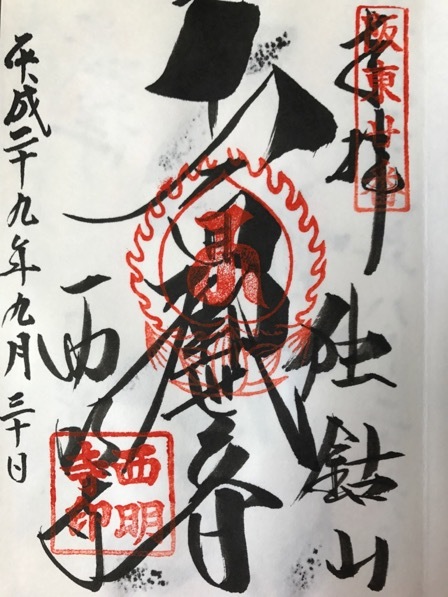 奉拝
坂東廿番
独鈷山
観世音
西明寺
西明寺印
平成二十九年九月三十日